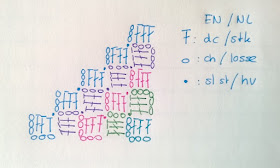 EN/NL
: dc/stk
o : ch/losse
• : slst/hv